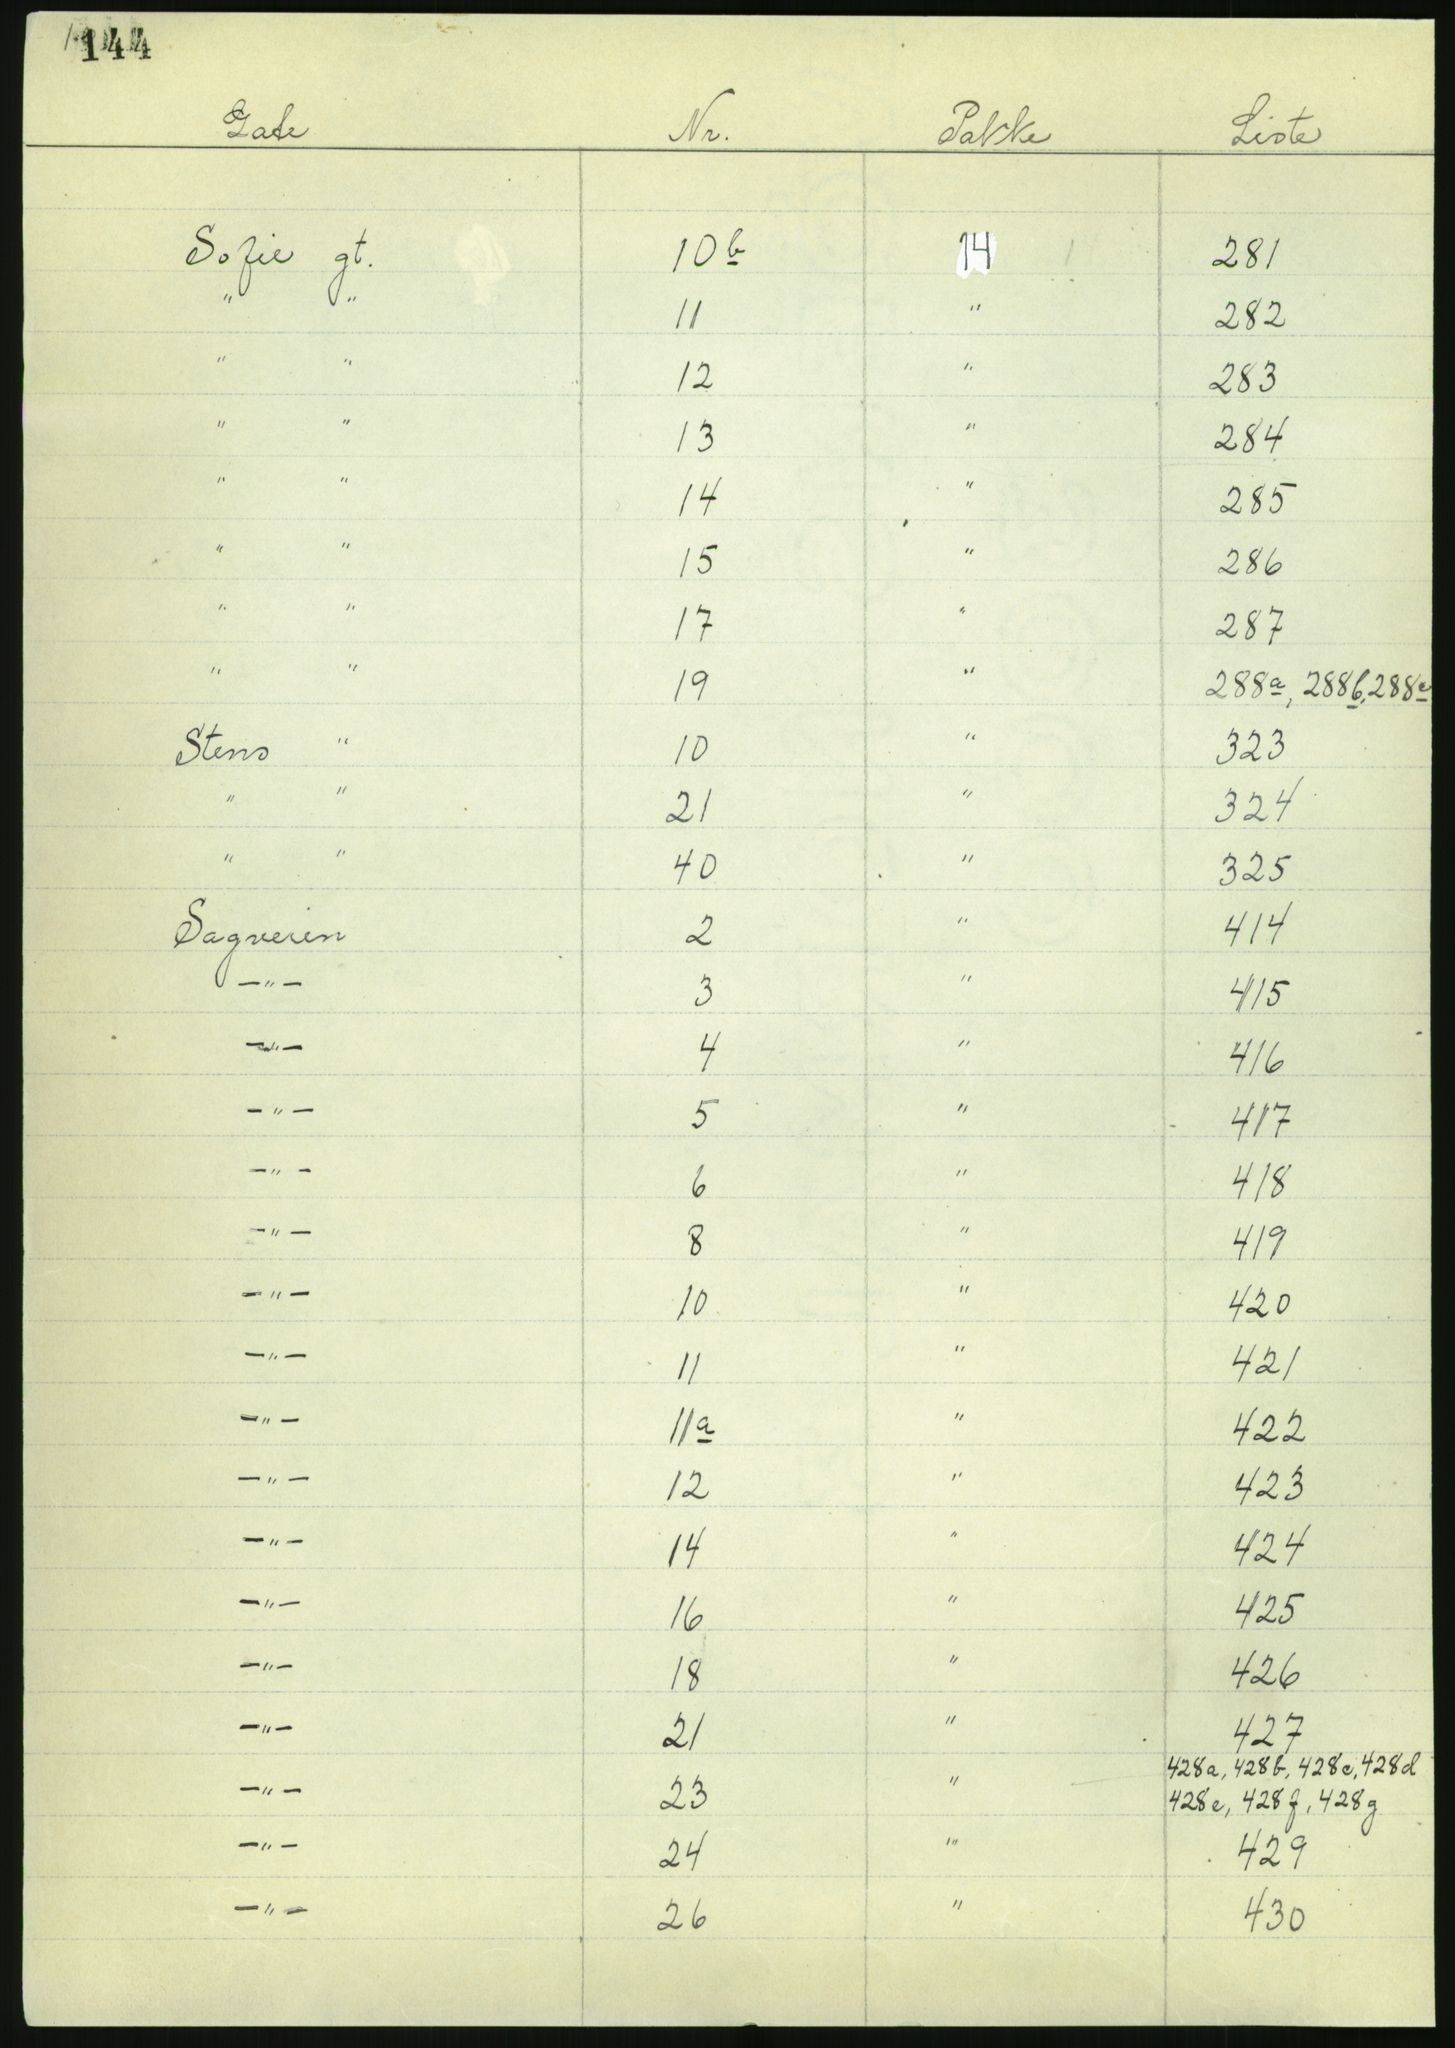 144
Gate Nr. Pakke Liste
Sofie gt. 10b 14 281
" " 11 " 282
" " 12 " 283
" " 13 " 284
" " 14 " 285
" " 15 " 286
" " 17 " 287
" " 19 " 288a, 288b, 288c
Stens " 10 " 323
" " 21 " 324
" " 40 " 325
Sagveien 2 " 414
—"— 3 " 415
—"— 4 " 416
—"— 5 " 417
—"— 6 " 418
—"— 8 " 419
—"— 10 " 420
—"— 11 " 421
—"— 11a " 422
—"— 12 " 423
—"— 14 " 424
—"— 16 " 425
—"— 18 " 426
—"— 21 " 427
—"— 23 " 428a, 428b, 428c, 428d
428e, 428f, 428g
—"— 24 " 429
—"— 26 " 430